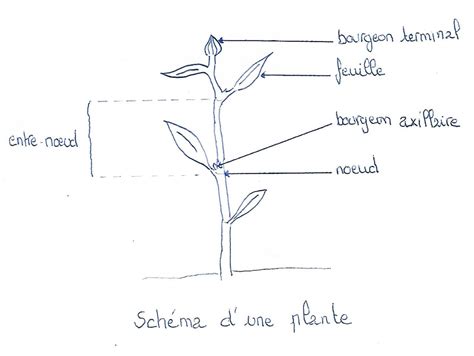 bourgeon terminal
feuille
bourgeon axillaire
entre-nœud
nœud
Schéma d'une plante